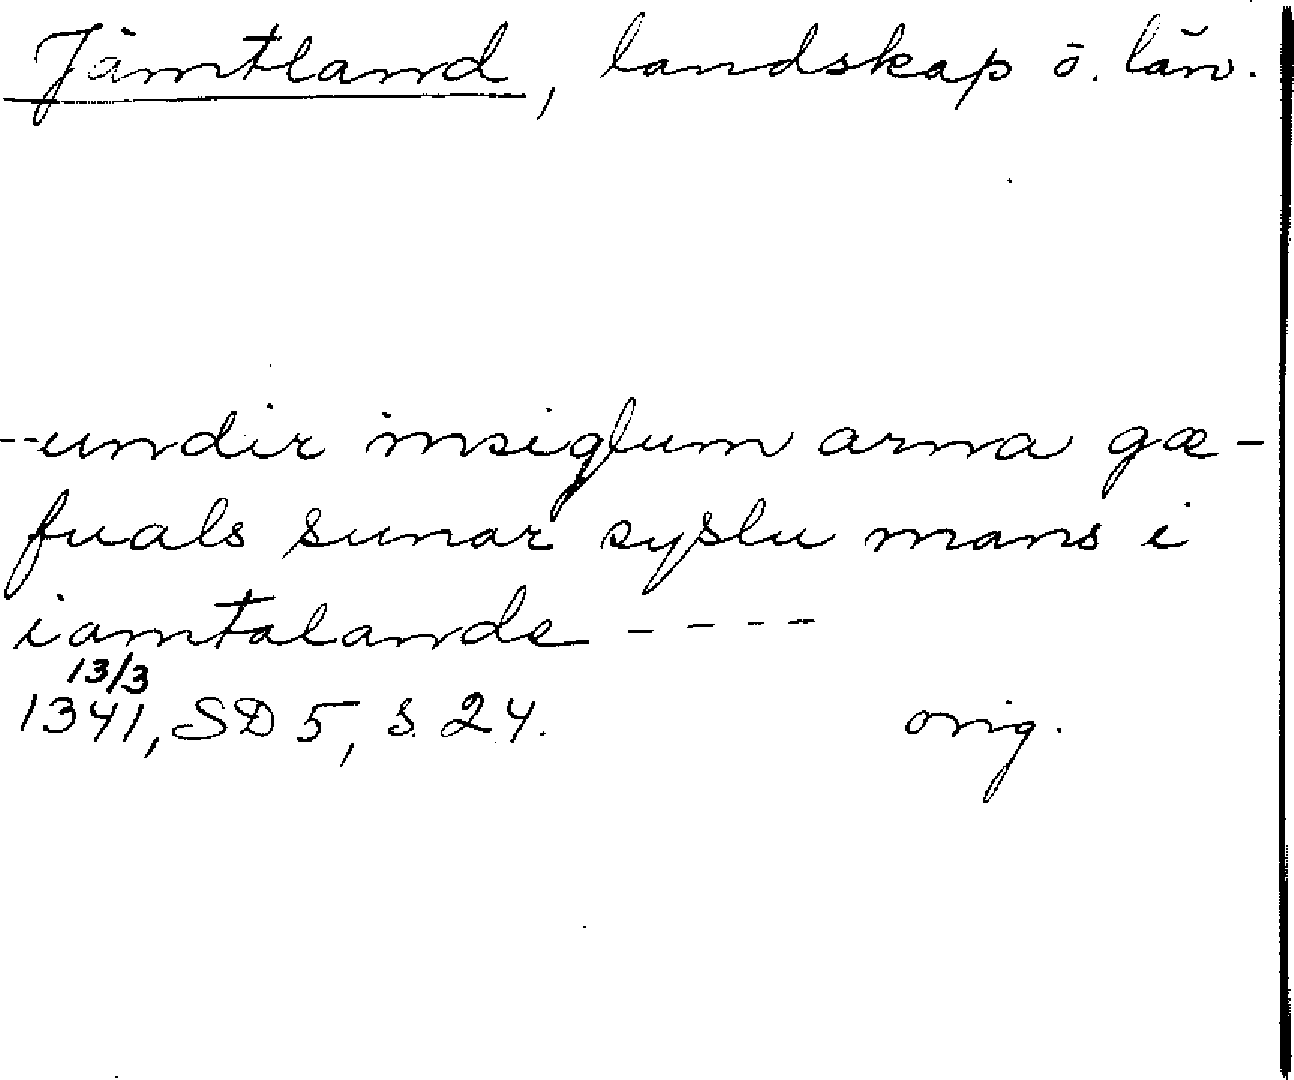 Jämtland, landskap o. län.
--undir insiglum arna gæ-
fuals sunar syslu mans i
iamtalande ----
13/3
1341, SD 5, s. 24. orig.